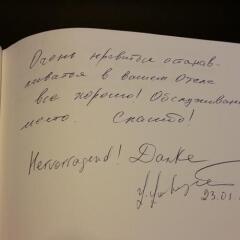 Очень нравится останав-
ливатся в вашем отеле
все хорошо! Обслуживан
место. Спасибо!
Hervorragend! Danke
23.01.